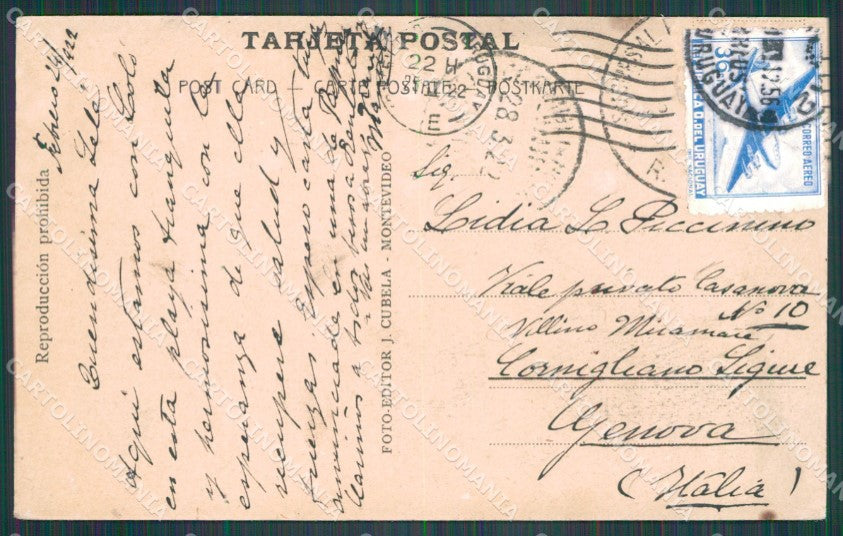 TARJETA POSTAL
POST CARD — CARTE POSTALE — POSTKARTE
Reproducción prohibida
FOTO-EDITOR J. CUBELA - MONTEVIDEO
Enero 24/922
Queridísima Lela
Aquí estamos con Lolo
en esta playa tranquila
y hermosísima con la
esperanza de que ella
recupere salud y
fuerzas. Espero carta tuya
anunciada en una de
Cariños a toda
Sig.
Lidia L. Piccinino
Viale privato Casanova
No 10
Villino Miramare
Cornigliano Ligure
Genova
(Italia)
22 H
URUGUAY
36c
CORREO AEREO
R. O. DEL URUGUAY
URUGUAY
CARTOLINOMANIA